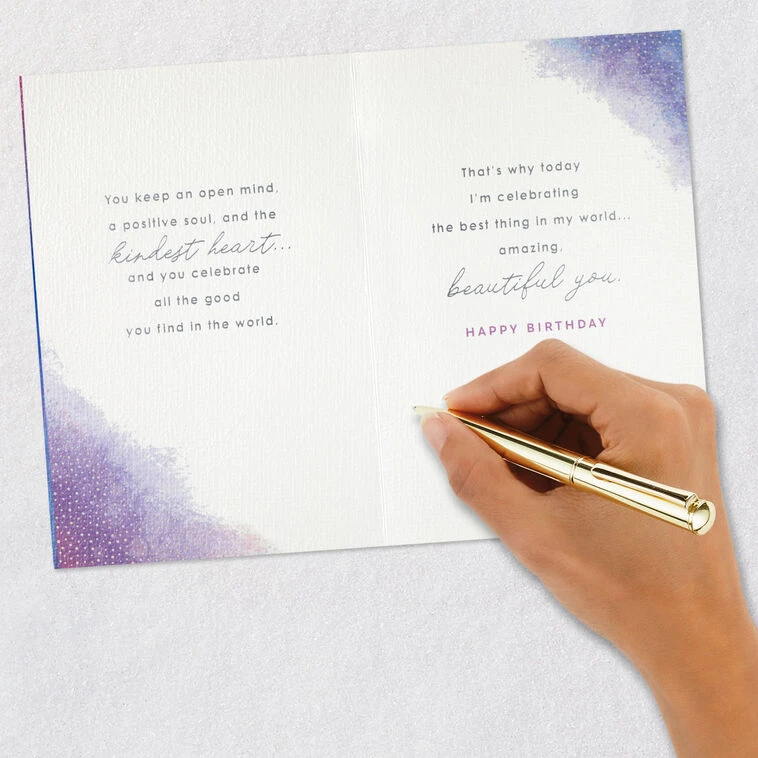 You keep an open mind,
a positive soul, and the
kindest heart...
and you celebrate
all the good
you find in the world.
That's why today
I'm celebrating
the best thing in my world...
amazing,
beautiful you.
HAPPY BIRTHDAY